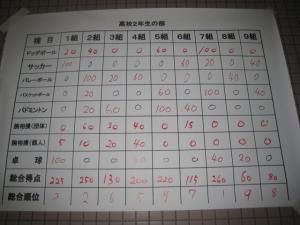 高校2年生の部
種目 1組 2組 3組 4組 5組 6組 7組 8組 9組
ドッヂボール 20 40 0 0 60 0 100 0 0
サッカー 100 0 0 0 0 60 20 0 40
バレーボール 0 100 20 60 0 0 0 40
バスケットボール 0 20 0 60 0 100 0 40
バドミントン 0 20 60 0 100 40 0 0 0
腕相撲(団体) 0 60 30 40 0 15 0 0 0
腕相撲(個人) 5 10 20 40 0 0 0 0 0
卓球 100 0 0 0 0 40 20 0
総合得点 225 250 130 200 220 115 260 60 80
総合順位 2 6 5 4 7 1 9 8